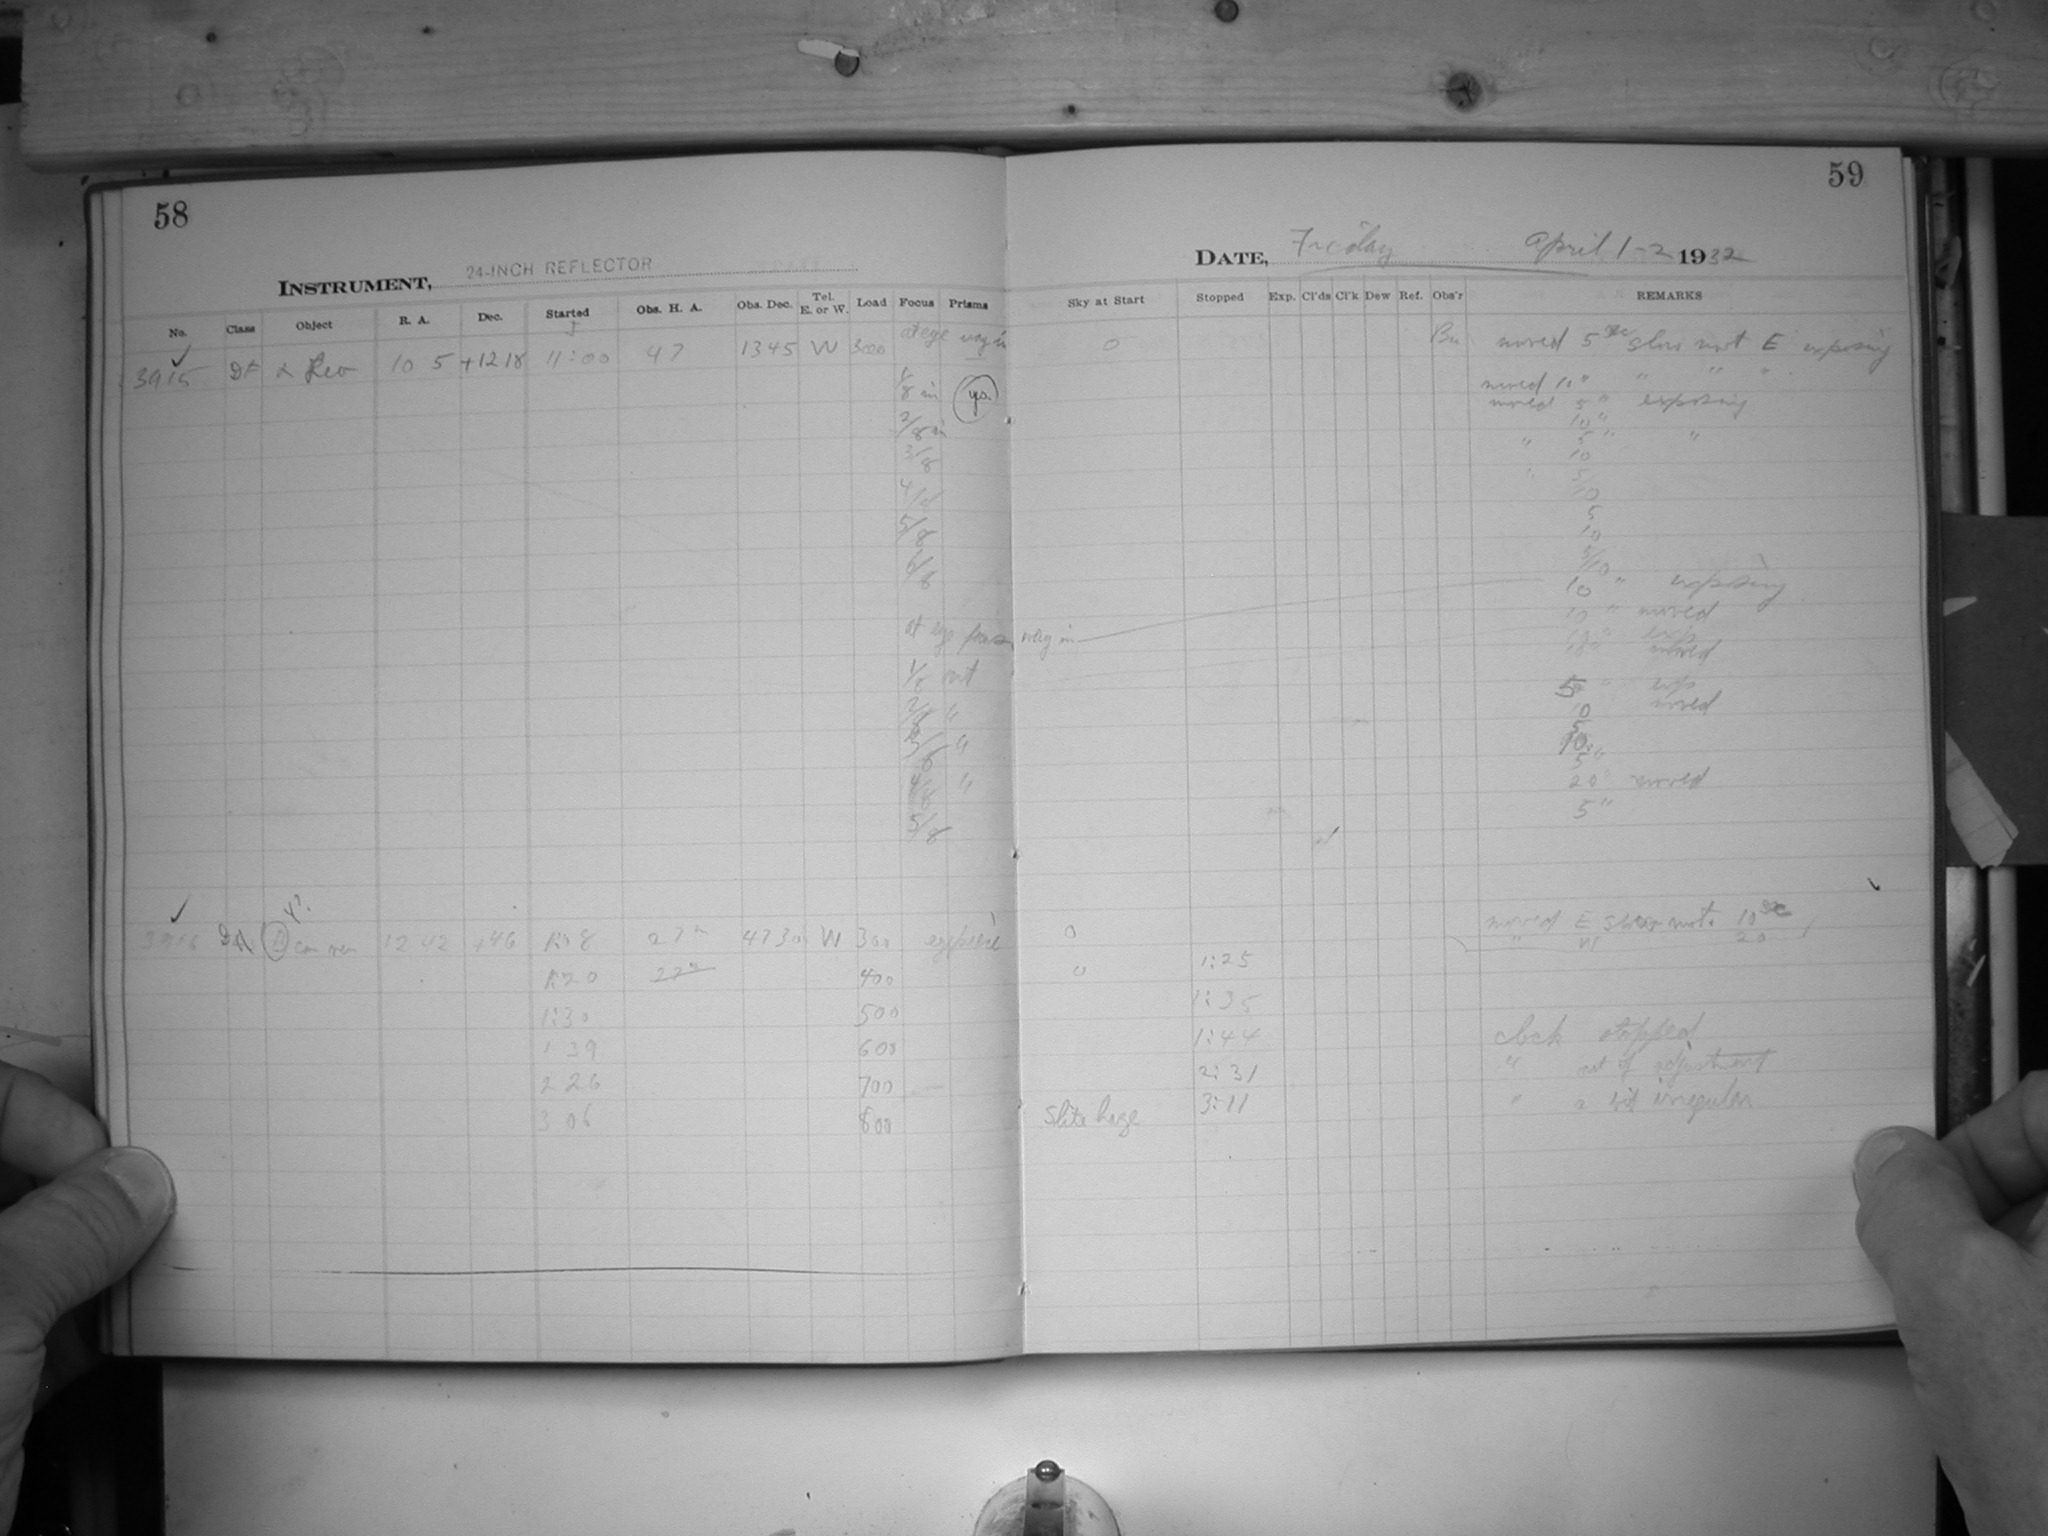 58
59
INSTRUMENT, 24-INCH REFLECTOR
DATE, Friday April 1-2 1932
No. Class Object R. A. Dec. Started Obs. H. A. Obs. Dec. Tel. E. or W. Load Focus Prisms
Sky at Start Stopped Exp. Cl'ds Cl'k Dew Ref. Obs'r REMARKS
3915 α Leo 10 5 +12 18 11:00 47 1345 W 300 at eye way in 0 moved 5 sec slow mot E exposing
1/8 in yes. moved 10 " " " "
moved 5 " exposing
2/8 in 10 "
" 5 " "
3/8 10
" 5
4/8 10
5
5/8 10
6/8 5/10
10 " exposing
10 " moved
at eye way in exp
moved
1/8 out 5 " exp
2/8 " 10 moved
5
" 10
5 "
" 20 moved
5/8 5 "
3916 can ven 12 42 +46 1:08 27 m 4730 W 300 0 moved E slow mot. 10 sec
" W 20
1:20 400 0 1:25
1:30 500 1:35
1 39 600 1:44 clock stopped
2 26 700 2:31 " out of adjustment
3 06 800 Slite haze 3:11 " a bit irregular